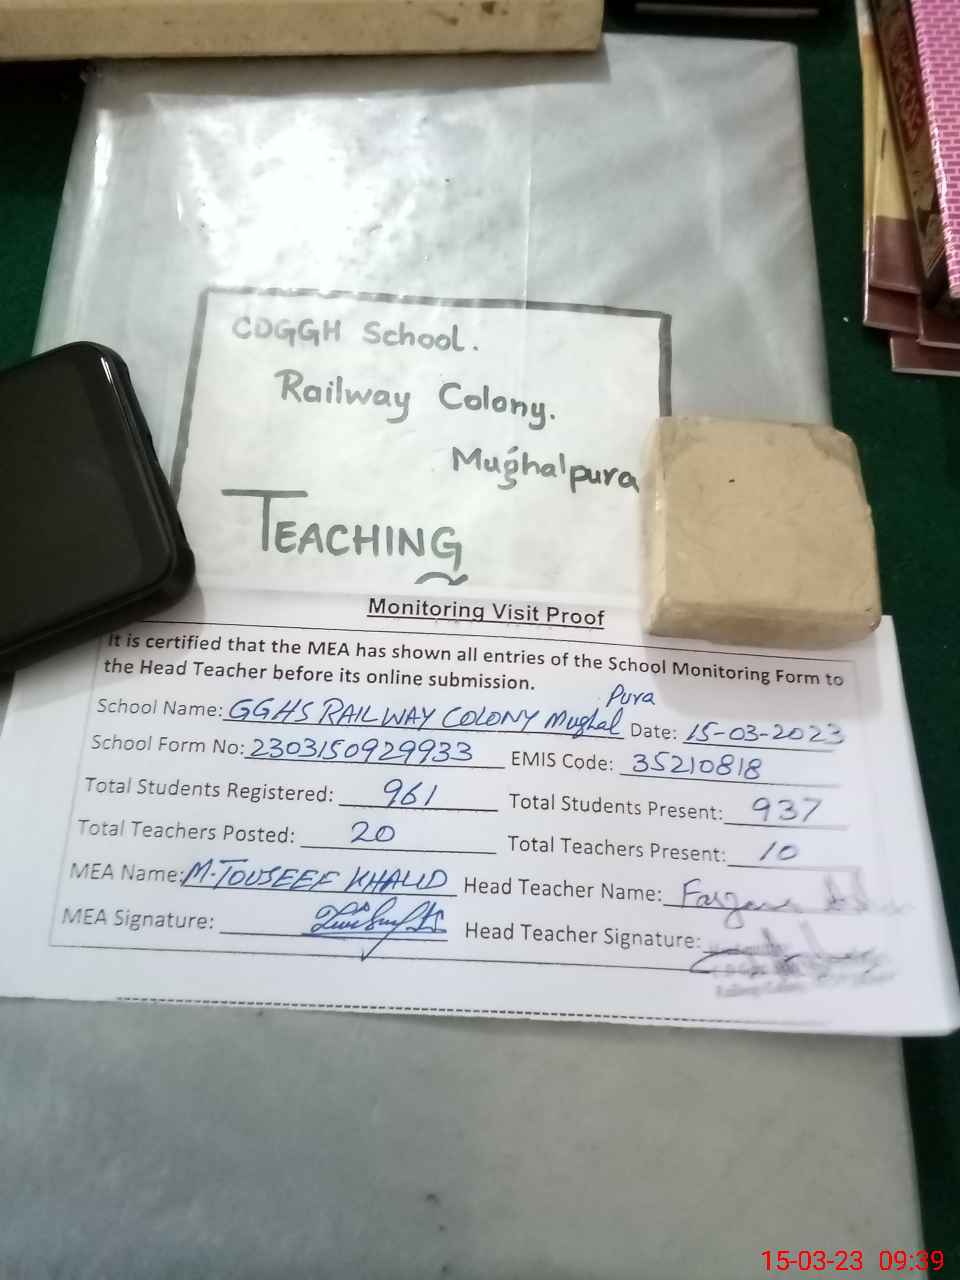 CDGGH School.
Railway Colony.
Mughalpura
TEACHING
Monitoring Visit Proof
It is certified that the MEA has shown all entries of the School Monitoring Form to
the Head Teacher before its online submission.
School Name: GGHS RAILWAY COLONY Mughal Pura Date: 15-03-2023
School Form No: 2303150929933 EMIS Code: 35210818
Total Students Registered: 961 Total Students Present: 937
Total Teachers Posted: 20 Total Teachers Present: 10
MEA Name: M. TOUSEEF KHALID Head Teacher Name:
MEA Signature: Head Teacher Signature:
15-03-23 09:39